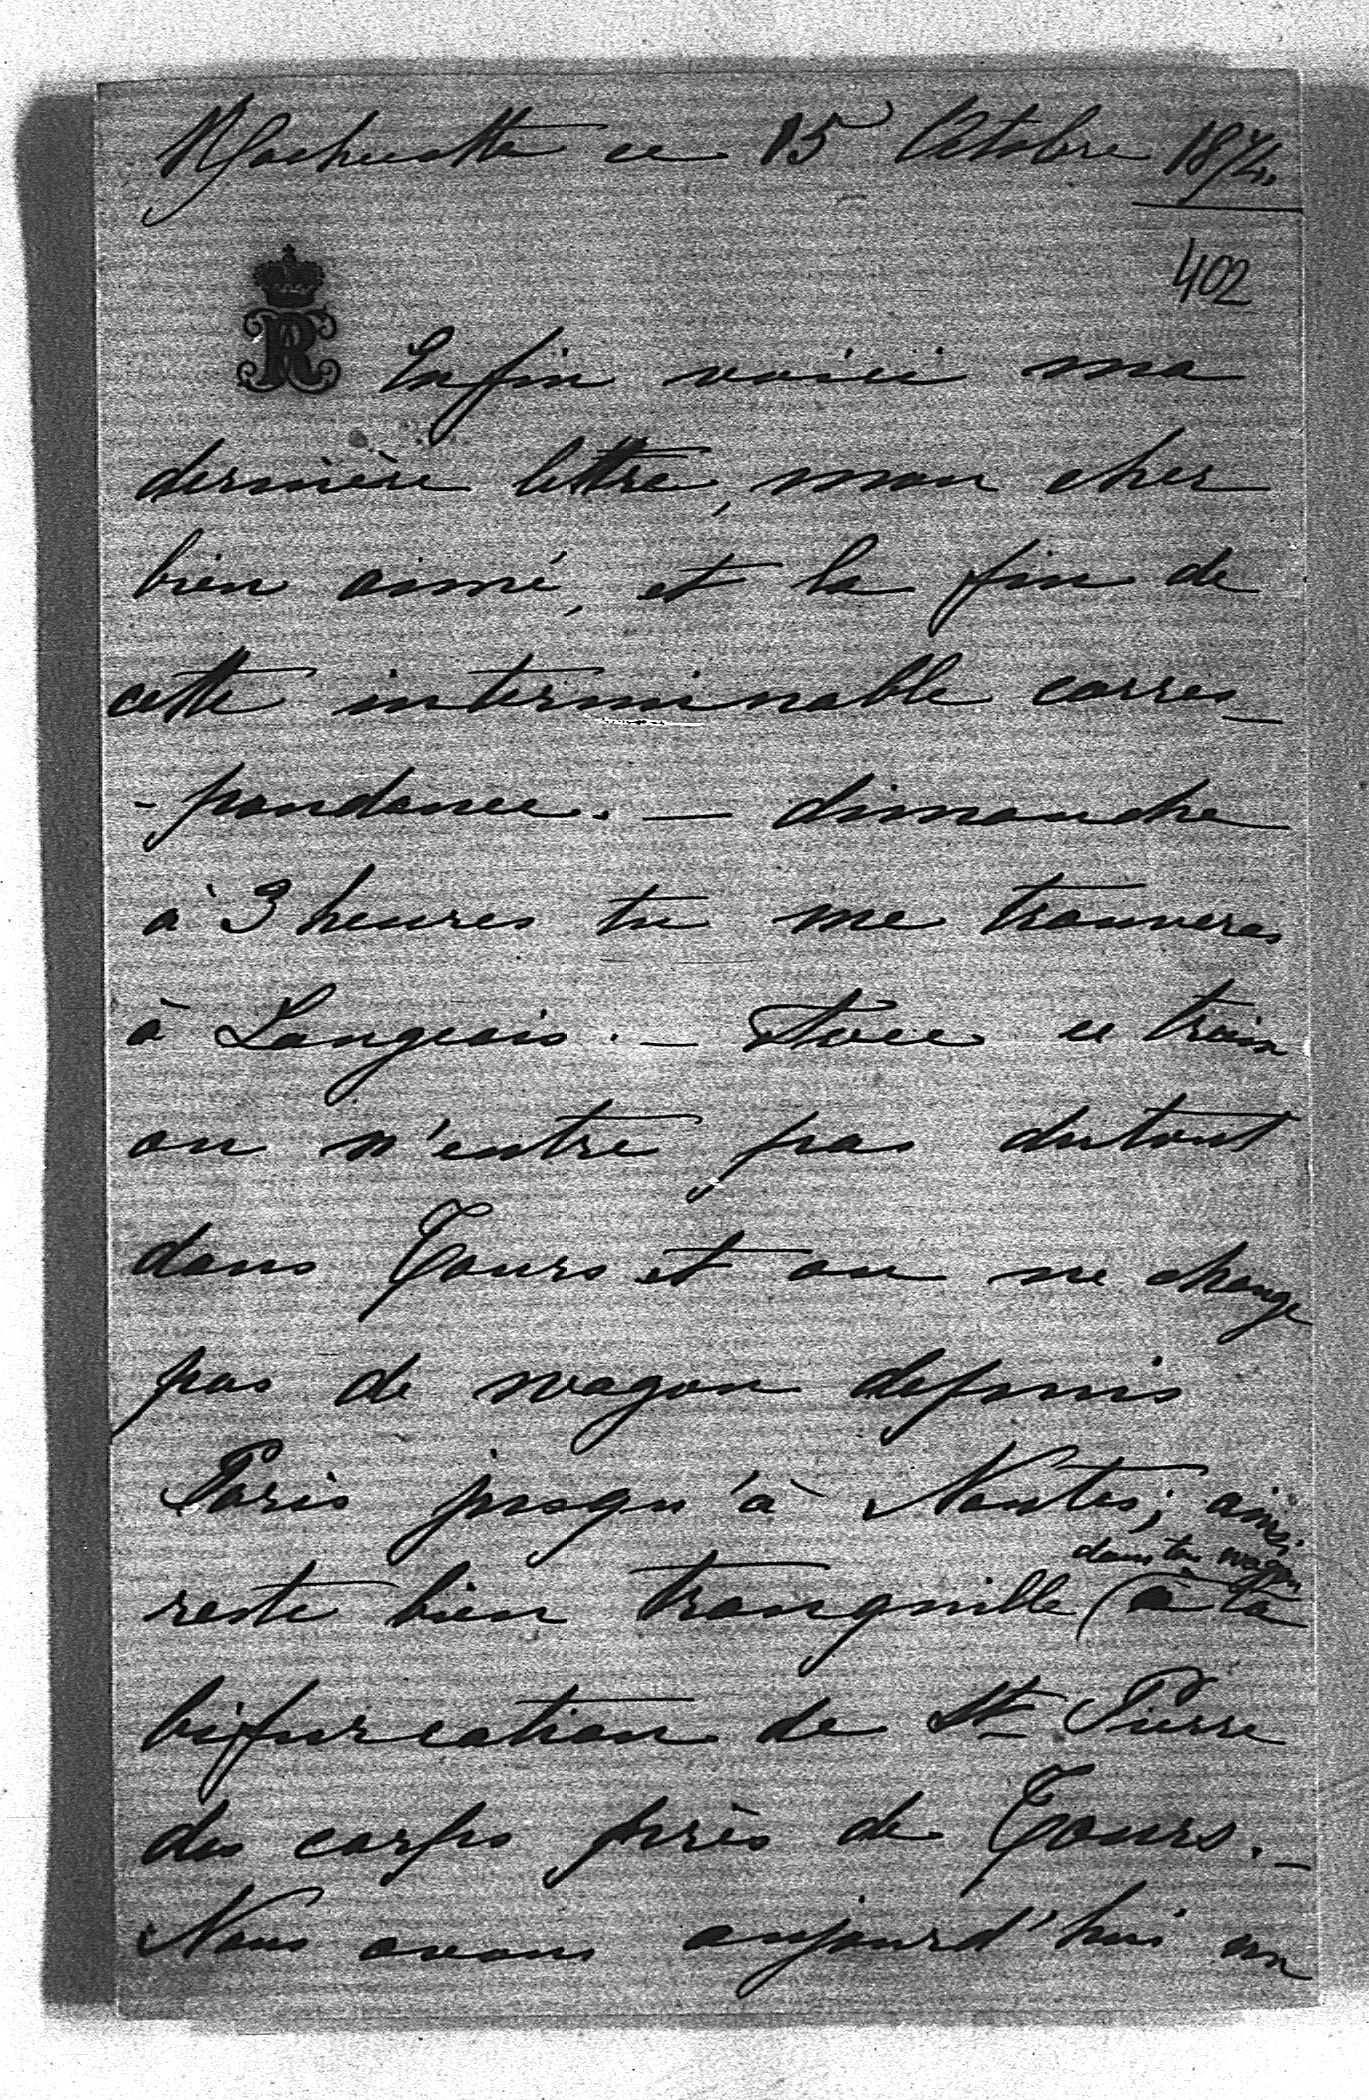 Rochecotte ce 15 Octobre 1874
402
R
Enfin voici ma
dernière lettre, mon cher
bien aimé, et la fin de
cette interminable corres-
-pondance. — dimanche
à 3 heures tu me trouveras
à Langeais. — Avec ce train
on n'entre pas dutout
dans Tours et on ne change
pas de wagon depuis
Paris jusqu'à Nantes; ainsi
dans ton wagon
reste bien tranquille (à la
bifurcation de St Pierre
des corps près de Tours. —
Nous avons aujourd'hui un